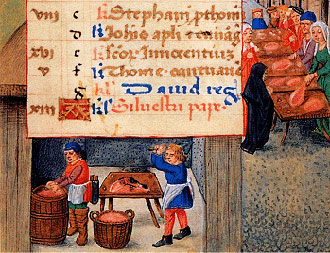 viii c kl Stephani pthom
d kl Iohis apli
xvi e kl Scor Innocentiu
v f kl Thome cantuarie
g kl Dauid reg
xiii A kl Siluestri pape